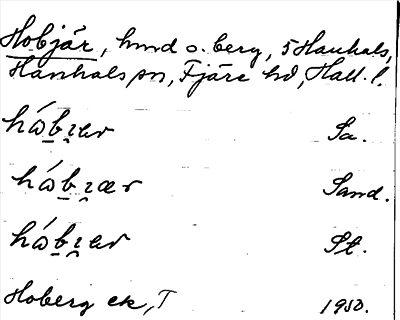 Hobjär, hmd o. berg, 5 Hanhals,
Hanhals sn, Fjäre hd, Hall. l.
hábɪar Sa.
hábɪær Sand.
hábɪar St.
Hoberg ek, T 1950.